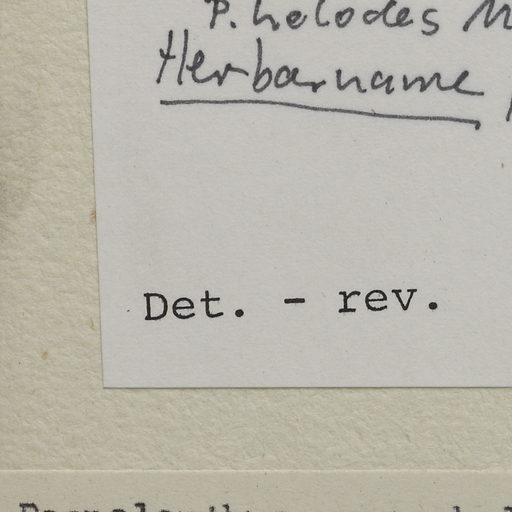 P. helodes
Herbarname
Det. - rev.